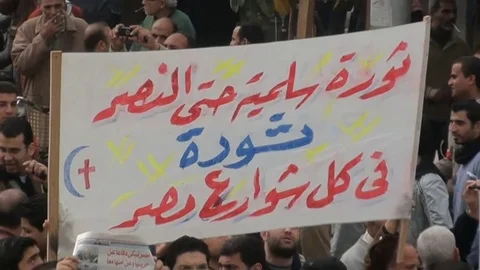 ثورة سلمية حتى النصر
ثورة
فى كل شوارع مصر